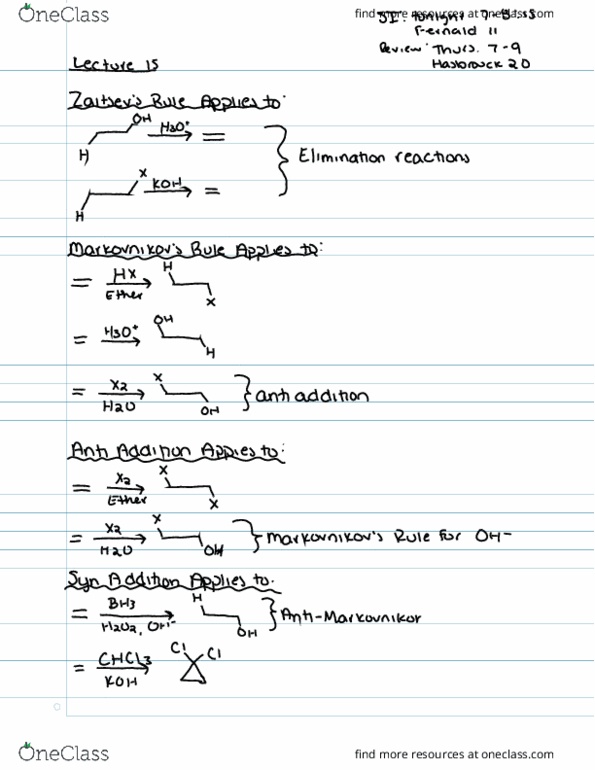 OneClass
find more resources at oneclass.com
SI: tonight 7-8:15
Fernald 11
Review: Thurs. 7-9
Hasbrouck 20
Lecture 15
Zaitsev's Rule Applies to:
OH H3O+ =
H
Elimination reactions
X KOH =
H
Markovnikov's Rule Applies to:
= HX H
Ether X
= H3O+ OH
H
= X2 X
H2O OH
anti addition
Anti Addition Applies to:
= X2 X
Ether X
= X2 X
H2O OH
Markovnikov's Rule for OH-
Syn Addition Applies to:
= BH3 H
H2O2, OH- OH
Anti-Markovnikov
= CHCl3 Cl Cl
KOH
OneClass
find more resources at oneclass.com